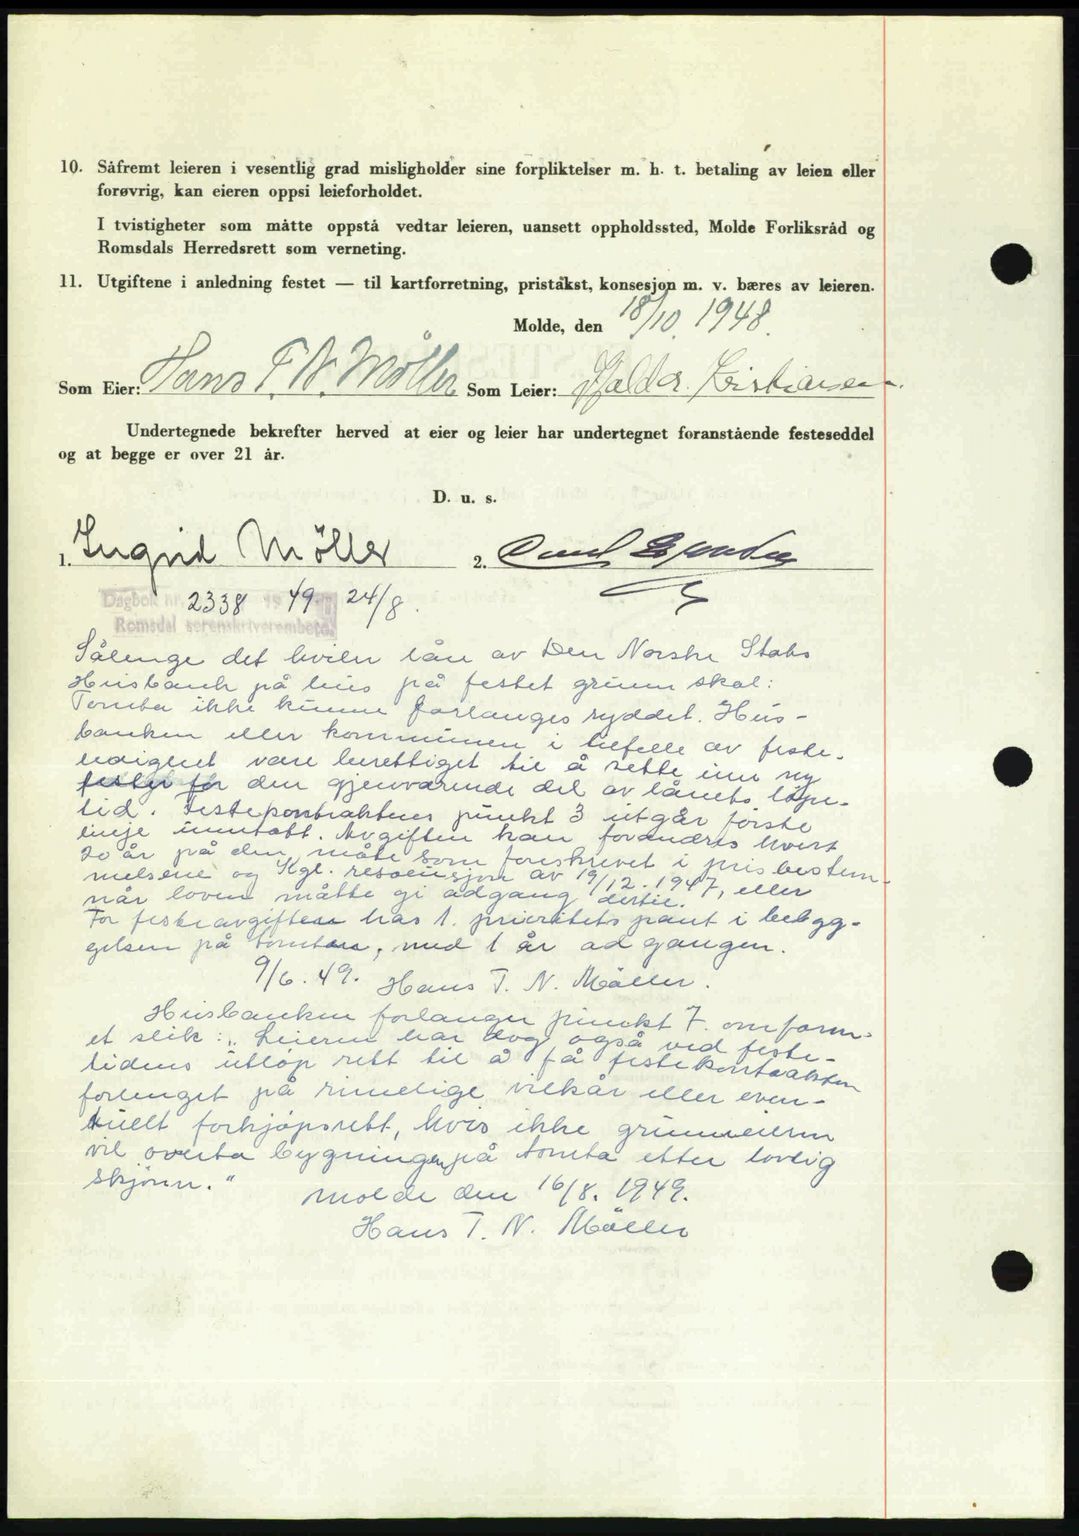 10. Såfremt leieren i vesentlig grad misligholder sine forpliktelser m. h. t. betaling av leien eller
forøvrig, kan eieren oppsi leieforholdet.
I tvistigheter som måtte oppstå vedtar leieren, uansett oppholdssted, Molde Forliksråd og
Romsdals Herredsrett som verneting.
11. Utgiftene i anledning festet — til kartforretning, pristakst, konsesjon m. v. bæres av leieren.
Molde, den 18/10 1948.
Som Eier: Hans T. N. Möller Som Leier: Kristiansen.
Undertegnede bekrefter herved at eier og leier har undertegnet foranstående festeseddel
og at begge er over 21 år.
D. u. s.
1. Ingrid Möller 2.
Dagbok nr. 2338 19 49 24/8.
Romsdal sorenskriverembete
Sålenge det hviler lån av Den Norske Stats
Husbank på hus på festet grunn skal:
Tomta ikke kunne forlanges ryddet. Hus-
banken eller kommunen i tilfelle av feste-
være berettiget til å sette inn ny
fester for den gjenværende del av lånets løpe-
tid. Festekontraktens punkt 3 utgår første
linje inntatt. Avgiften kan forandres hvert
10 år på den måte som foreskrevet i prisbestem-
melsene og Kgl. resolusjon av 19/12. 1947, eller
når loven måtte gi adgang dertil.
For festeavgiften has 1. prioritets pant i bebygg-
gelsen på tomten, med 1 år ad gangen.
9/6. 49. Hans T. N. Möller.
Husbanken forlanger punkt 7. omform-
et slik: „Leieren har dog også ved feste-
tidens utløp rett til å få festekontrakten
forlenget på rimelige vilkår eller even-
tuelt forkjøpsrett, hvis ikke grunneieren
vil overta bygningen på tomta etter lovlig
skjønn."
Molde den 16/8. 1949.
Hans T. N. Möller